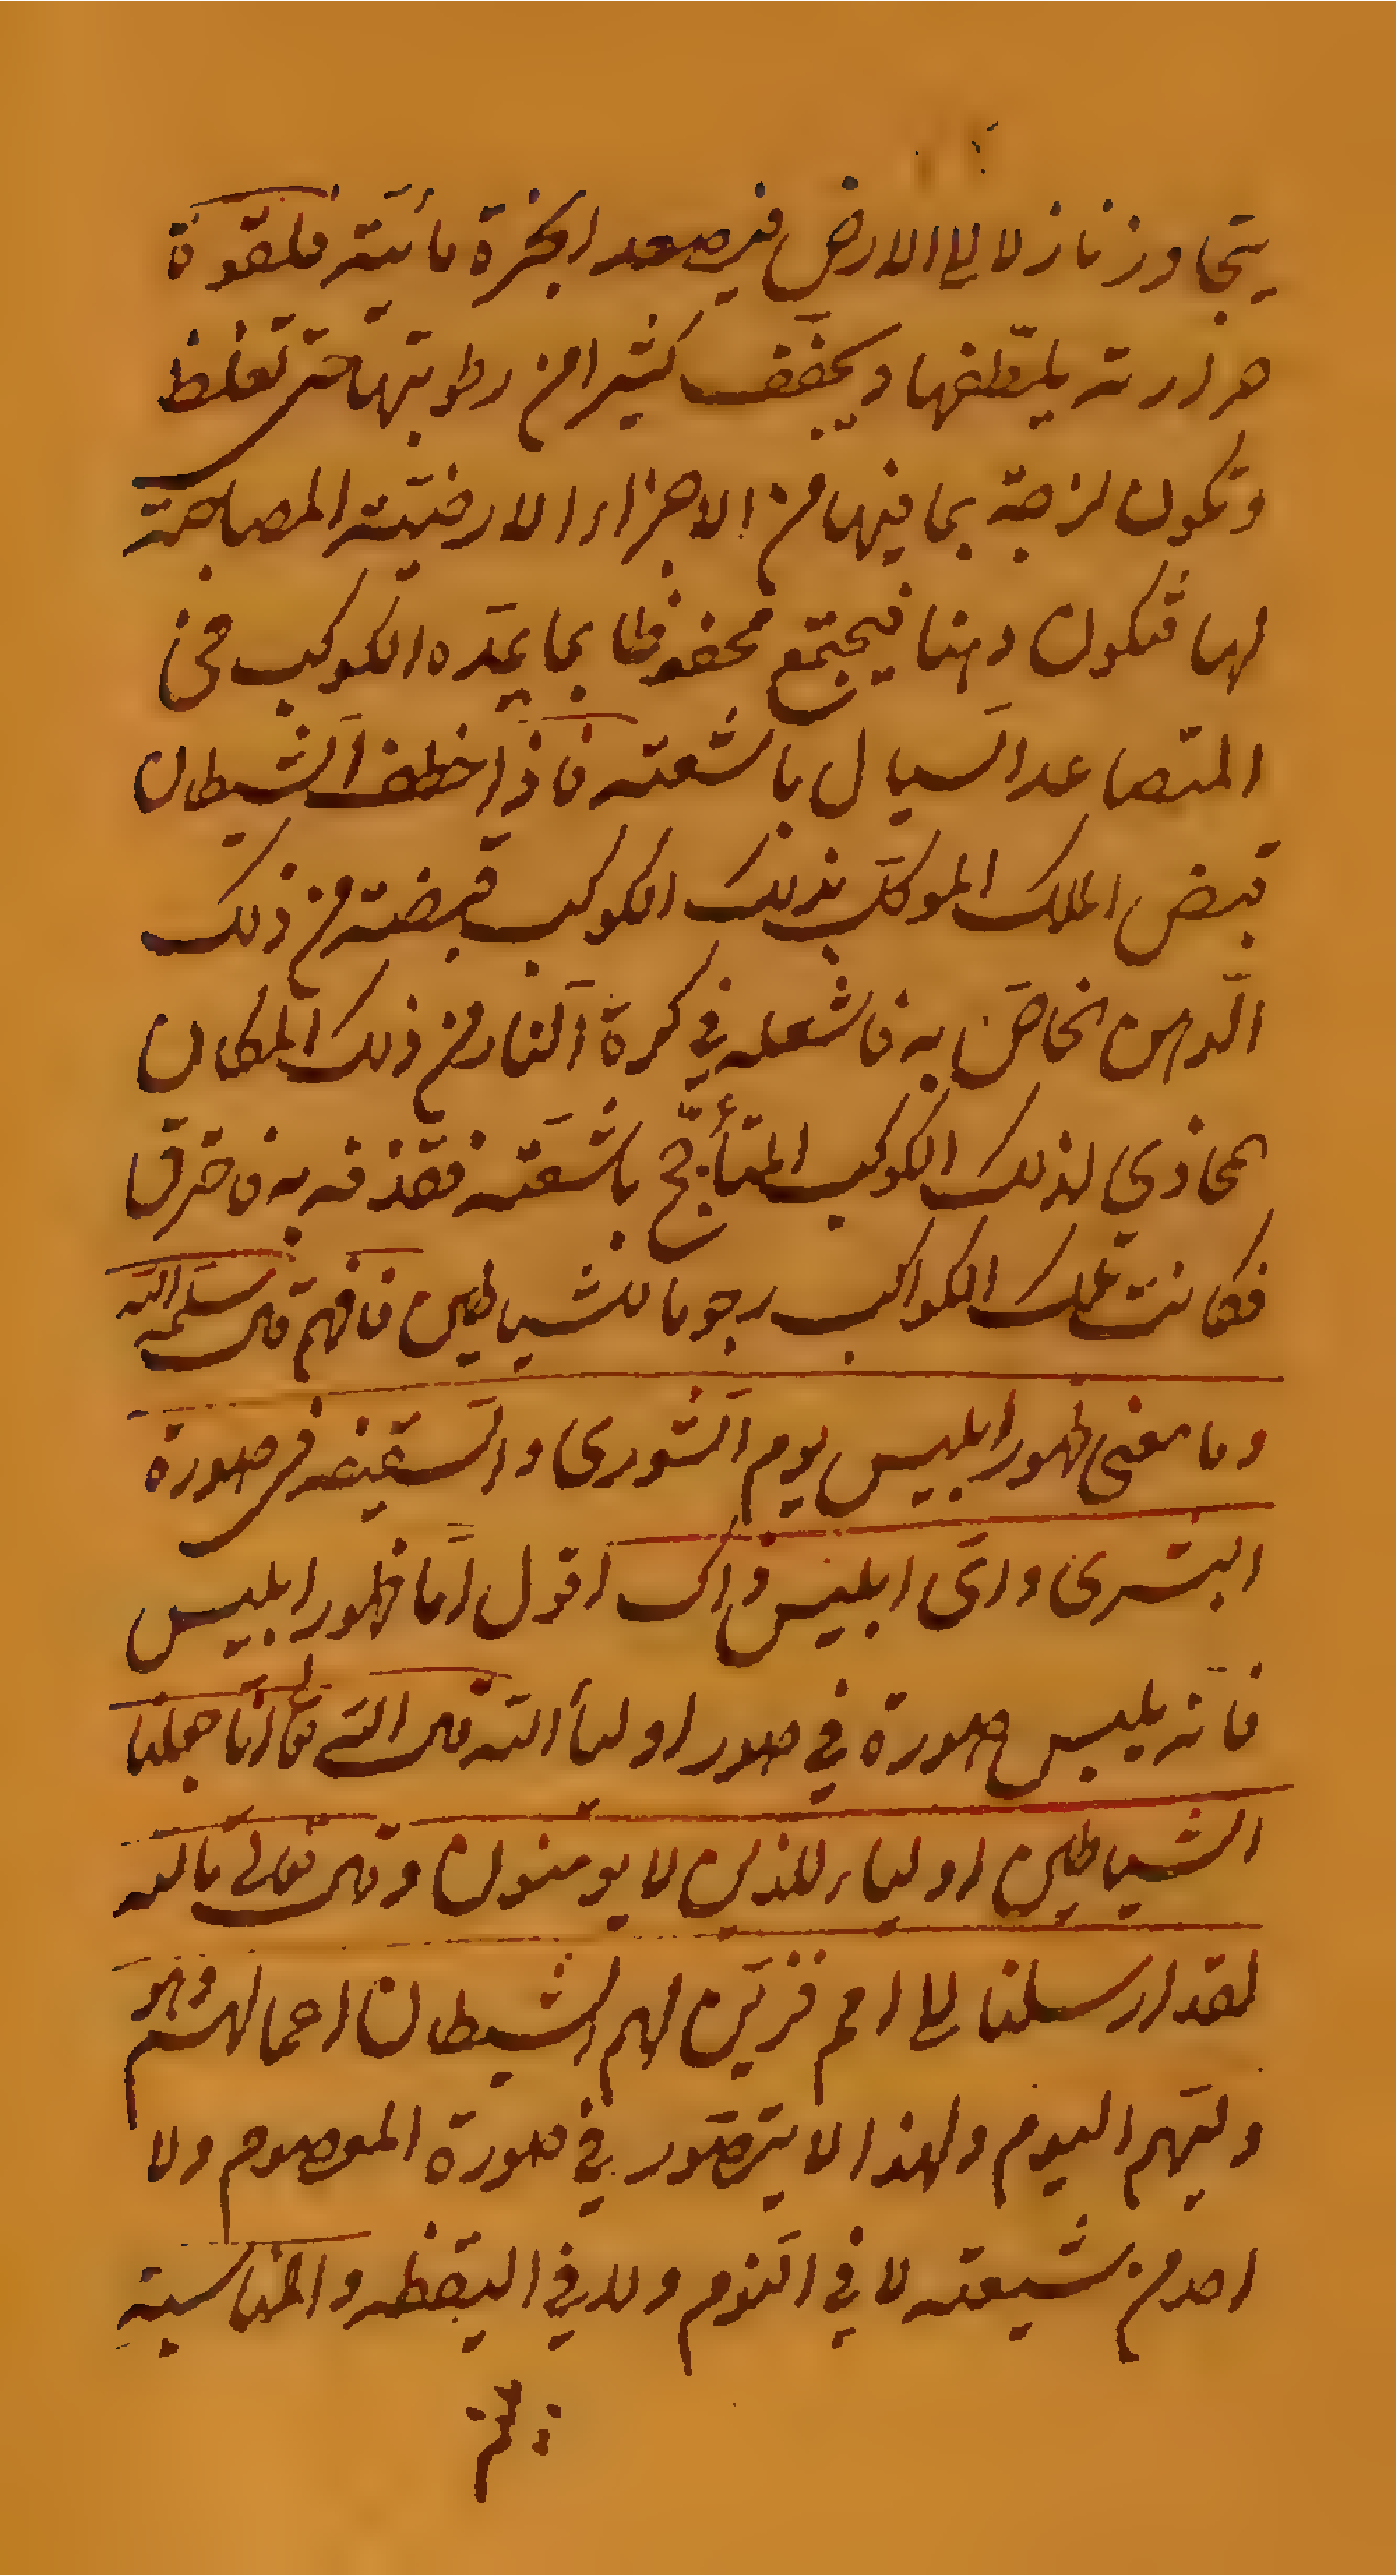 يتجاوز نازلا الى الارض فيصعد ابخرة مائيّة فلقوة
حرارته يلطّفها ويجفّف كثيرا من رطوبتها حتى تغلظ
وتكون لزجة بما فيها من الاجزاء الارضيّة المصاحبة
لها فتكون دهنا فيجتمع محفوظا بما يمدّه الكوكب من
المتصاعد السيال باشعته فاذا خطف الشيطان
قبض الملك الموكل بذلك الكوكب قبضته من ذلك
الدهن الخاصّ به فاشعله في كرة النار من ذلك المكان
المحاذي لذلك الكوكب المتأجّج باشعّته فقذفه به فاحترق
فكانت تلك الكواكب رجوما للشياطين فافهم قال سلمه الله
وما معنى ظهور ابليس يوم الشورى والسقيفه في صورة
البشرى واىّ ابليس ذاك اقول امّا ظهور ابليس
فانه يلبس صورة في صور اوليائه قال الله تعالى انّا جعلنا
الشياطين اولياء للذين لا يومنون وقال تعالى تالله
لقد ارسلنا الى امم فزيّن لهم الشيطان اعمالهم فهو
وليّهم اليوم ولهذا لا يتصوّر في صورة المعصوم ولا
احد من شيعته لا في النوم ولا في اليقظه والمناسبة